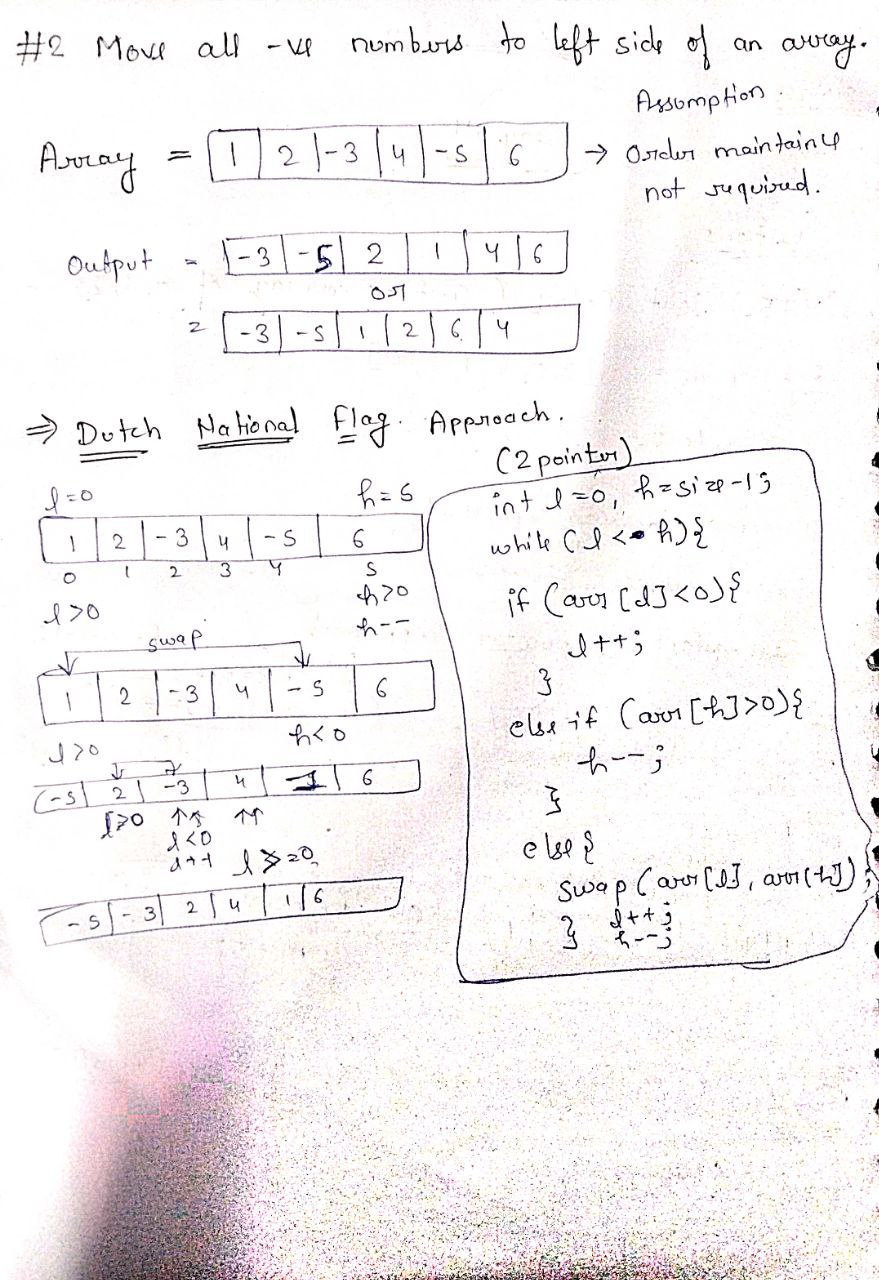 #2 Move all -ve numbers to left side of an array.
Assumption.
Array = | 1 | 2 | -3 | 4 | -5 | 6 | → Order maintaine
not required.
Output = | -3 | -5 | 2 | 1 | 4 | 6 |
or
= | -3 | -5 | 1 | 2 | 6 | 4 |
⇒ Dutch National Flag. Approach.
(2 pointer)
l=0 h=5
| 1 | 2 | -3 | 4 | -5 | 6 |
0 1 2 3 4 5
l>0 h>0
h--
swap
| 1 | 2 | -3 | 4 | -5 | 6 |
l>0 h<0
| -5 | 2 | -3 | 4 | 1 | 6 |
l>0 ↑↑ ↑↑
l<0
l++ l>=0
| -5 | -3 | 2 | 4 | 1 | 6 |
int l=0, h=size-1;
while (l < h){
if (arr[l]<0){
l++;
}
else if (arr[h]>0){
h--;
}
else{
swap(arr[l], arr[h]);
} l++;
h--;